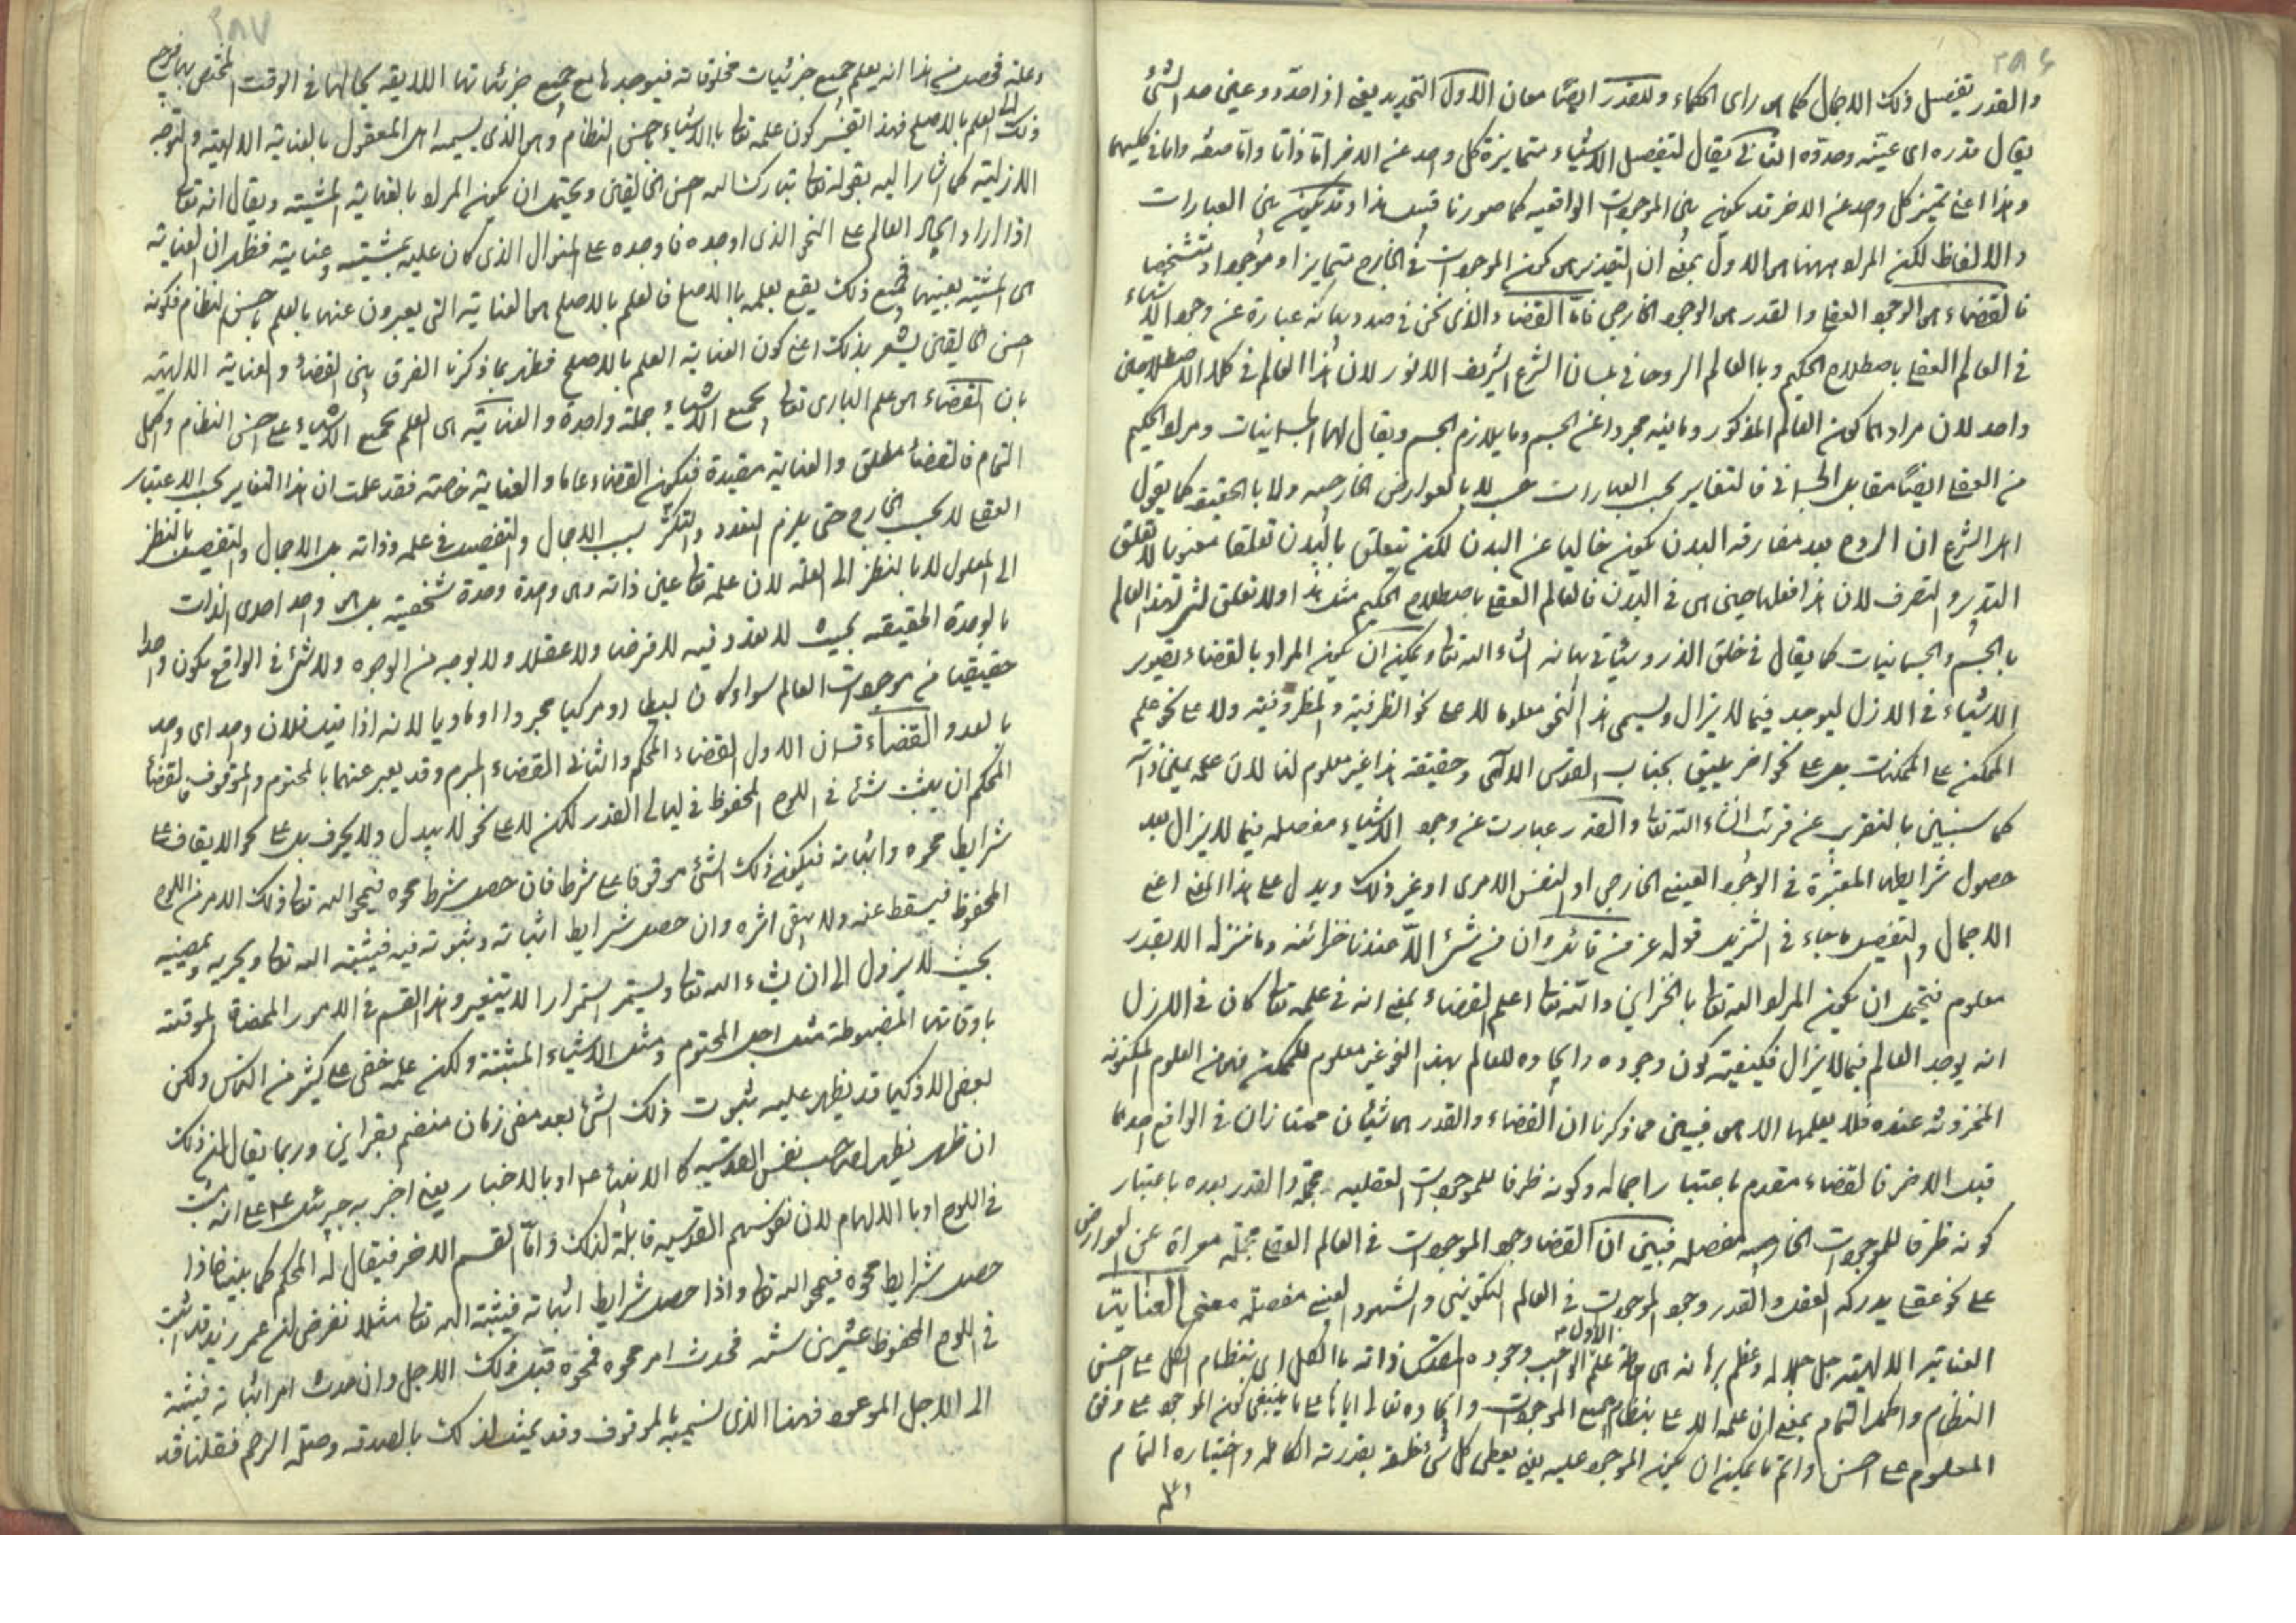 ٢٨٦
والقدر تفصيل ذلك الاجمال كما هى راى الحكماء وللقدر ايضًا معان الاول التحديد يعنى اذا حدّد وعيّن حد الشئ
يقال قدره اى عيّنه وحدّده الثانى يقال لتفصيل الاشياء متمايزة كل واحد عن الاخر امّا ذاتا وامّا صفة واما فى كليهما
وهذا اعنى تميز كل واحد عن الاخر قد يكون بين الموجودات الواقعيه كما صورنا قبيل هذا وقد يكون بين العبارات
والالفاظ لكن المراد ههنا هى الاول بمعنى ان التقدير هى كون الموجودات فى الخارج متمايزا وموجودا وتشخصا
فالقضاء هى الوجود العقلى والقدر هى الوجود الخارجى فامّا القضاء الذى نحن فى صدد بيانه عبارة عن وجود الاشياء
فى العالم العقلى باصطلاح الحكيم وبالعالم الروحانى بلسان الشرع الشريف الانور لان هذا العالم فى كلا الاصطلاحين
واحد لان مرادهما كون العالم المذكور وما فيه مجردا عن الجسم وما يلازم الجسم ويقال لهما الجسمانيات ومراد الحكيم
من العقلى ايضًا مقابل الجسمانى فالتغاير بحسب العبارات لا بالعوارض الخارجيه ولا بالحقيقة كما يقول
اهل الشرع ان الروح بعد مفارقة البدن يكون خاليا عن البدن لكن يتعلق بالبدن تعلقا معنويا لا تعلق
التدبير والتصرف لان هذا فعلها حين هى فى البدن فالعالم العقلى باصطلاح الحكيم مثل هذا ولا تعلق لشئ لهذا العالم
بالجسم والجسمانيات كما يقال فى خلق الذر وسيأتى بيانه انشاء الله تعالى ويمكن ان يكون المراد بالقضاء تصوير
الاشياء فى الازل ليوجد فيما لا يزال ويسمى هذا النحو معلوما لا على نحو الظرفية والمظروفية ولا على نحو علم
الممكن على الممكنات بل على نحو اخر يليق بجناب القدس الالهى وحقيقة هذا غير معلوم لنا لان علمه بعين ذاته
كما سنبين بالتقريب عن قريب انشاء الله تعالى والقدر عبارت عن وجود الاشياء مفصله فيما لا يزال بعد
حصول شرايطها المعتبرة فى الوجود العينى الخارجى او النفس الامرى او غير ذلك ويدل على هذا المعنى اعنى
الاجمال والتفصيل ما جاء فى التنزيل قوله عز من قائل وان من شئ الّا عندنا خزائنه وما ننزله الا بقدر
معلوم فيحتمل ان يكون المراد الله تعالى بالخزاين والله تعالى اعلم القضاء بمعنى انه فى علمه تعالى كان فى الازل
انه يوجد العالم فيما لا يزال فكيفية كون وجوده وايجاده للعالم بهذا النحو غير معلوم للممكن فهى من العلوم المكنونه
المخزونه عنده فلا يعلمها الا هى فبيّن مما ذكرنا ان القضاء والقدر هما شيئان ممتازان فى الواقع احدهما
قبل الاخر فالقضاء مقدم باعتبار اجماله وكونه ظرفا للموجودات العقليه مجمّلة والقدر بعده باعتبار
كونه ظرفا للموجودات الخارجيه مفصله فبيّن ان القضا وجود الموجودات فى العالم العقلى مجمّلة معراة عن العوارض
على نحو عقلى يدركه العقل والقدر وجود الموجودات فى العالم التكوينى والشهود العينى مفصلة معنى العنايت
العناية الالهيّة جل جلاله وعظم برهانه هى احاطة علم الاول الواجب وجوده المقدس ذاته بالكل اى بنظام الكل على احسن
النظام واكمل التمام بمعنى ان علمه الاعلى بنظام جميع الموجودات وايجاده تعالى اياها على ما ينبغى كون الموجود على وفق
المعلوم على احسن واتم ما يمكن ان يكون الموجود عليه يعنى يعطى كل شئ خلقه بقدرته الكامله واختياره التام
٢٨٧
وعلمه فحصل من هذا انه يعلم جميع جزئيات مخلوقاته فيوجدها مع جميع جزئياتها اللايقه بحالها فى الوقت المختص بها فرجع
ذلك العلم بالاصلح فهذا التفسير كون علمه تعالى بالاشياء باحسن النظام وهى الذى يسميه اهل المعقول بالعناية الالهيّة والتوجه
الازليّة كما اشار اليه بقوله تعالى تبارك الله احسن الخالقين ويحتمل ان يكون المراد بالعناية المشيّة ويقال انه تعالى
اذا اراد ايجاد العالم على النحو الذى اوجده فاوجده على المنوال الذى كان عليه بمشيته وعناية فظهر ان العناية
هى المشيّة بعينها فجميع ذلك يقع بعلمه بالاصلح فالعلم بالاصلح هى العناية التى يعبرون عنها بالعلم باحسن النظام فكونه
احسن الخالقين يشعر بذلك اعنى كون العناية العلم بالاصلح فظهر بما ذكرنا الفرق بين القضاء والعناية الالهيّة
بان القضاء هى علم البارى تعالى بجميع الاشياء جملة واحدة والعناية هى العلم بجميع الاشياء على احسن النظام واكمل
التمام فالقضاء مطلق والعناية مقيدة فيكون القضاء عاما والعناية خاصّة فقد علمت ان هذا التغاير بحسب الاعتبار
العقلى لا بحسب الخارج حتى يلزم التعدد والتكثر بسبب الاجمال والتفصيل فى علمه وذاته بل الاجمال والتفصيل بالنظر
الى المعلول لا بالنظر الى العلّة لان علمه تعالى عين ذاته وهى واحدة وحدة شخصية بل هى واحد احدى الذات
بالوحدة الحقيقيه بحيث لا تعدد فيه لا فرضا ولا عقلا ولا بوجه من الوجوه ولا شئ فى الواقع يكون واحدا
حقيقيا من موجودات العالم سواء كان بسيطا او مركبا مجردا او ماديا لانه اذا قيل فلان واحد اى واحد
بالعدد القضاء قسمان الاول القضاء المحكم والثانى القضاء المبرم وقد يعبر عنهما بالمحتوم والموقوف فالقضاء
المحكم ان يثبت شئ فى اللوح المحفوظ فى ليالى القدر لكن لا على نحو لا يبدل ولا يحرف بل على نحو الايقاف على
شرايط محوه واثباته فيكون ذلك الشئ موقوفا على شرط فان حصل شرط محوه فيمحو الله تعالى ذلك الامر من اللوح
المحفوظ فيسقط عنه ولا يبقى اثره وان حصل شرايط اثباته وثبوته فيه فيثبته الله تعالى ويجريه ويمضيه
بحيث لا يزول الى ان يشاء الله تعالى ويستمر استمرارا لا يتغير وهذا القسم فى الامور المحضة الموقتة
باوقاتها المضبوطة مثل اجل المحتوم ومثل الاشياء المثبتة ولكن علمه خفى على كثير من الناس ولكن
بعض الاذكيا قد يظهر عليه ثبوت ذلك الشئ بعد مضى زمان منضم بقراين وربما يقال ذلك
ان ظهر يظهر لصاحب نفس القدسيه كالانبياء ع او بالاخبار يعنى اخبر به جبرئيل ع على انه ثبت
فى اللوح او بالالهام لان نفوسهم القدسيه قابلة لذلك وامّا القسم الاخر فيقال له المحكم كما بيّنا فاذا
حصل شرايط محوه فيمحو الله تعالى واذا حصل شرايط اثباته فيثبته الله تعالى مثلا نفرض ان عمر زيد قد اثبت
فى اللوح المحفوظ عشرين سنه فحدث امر محوه فمحوه قبل ذلك الاجل وان حدث امر اثباته فيثبته
الى الاجل الموعود فهذا الذى نسميه بالموقوف وقد يمثل لذلك بالصدقه وصلة الرحم فقلنا قد